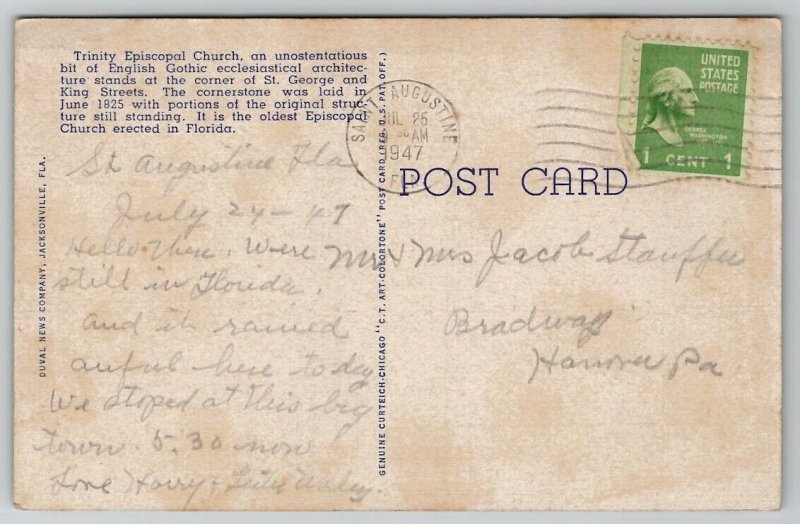 Trinity Episcopal Church, an unostentatious
bit of English Gothic ecclesiastical architec-
ture stands at the corner of St. George and
King Streets. The cornerstone was laid in
June 1825 with portions of the original struc-
ture still standing. It is the oldest Episcopal
Church erected in Florida.
DUVAL NEWS COMPANY, JACKSONVILLE, FLA.
St Augustine Fla
July 24-47
Hello then. Were
still in Florida.
And it rained
awful here today
We stoped at this big
town 5.30 now
Love Harry &
GENUINE CURTEICH-CHICAGO "C.T. ART-COLORTONE" POST CARD (REG. U.S. PAT. OFF.)
SAINT AUGUSTINE
JUL 25
AM
1947
FLA
UNITED
STATES
POSTAGE
GEORGE
WASHINGTON
1 CENT 1
POST CARD
Mr & Mrs Jacob Stauffer
Bradway
Hanover Pa